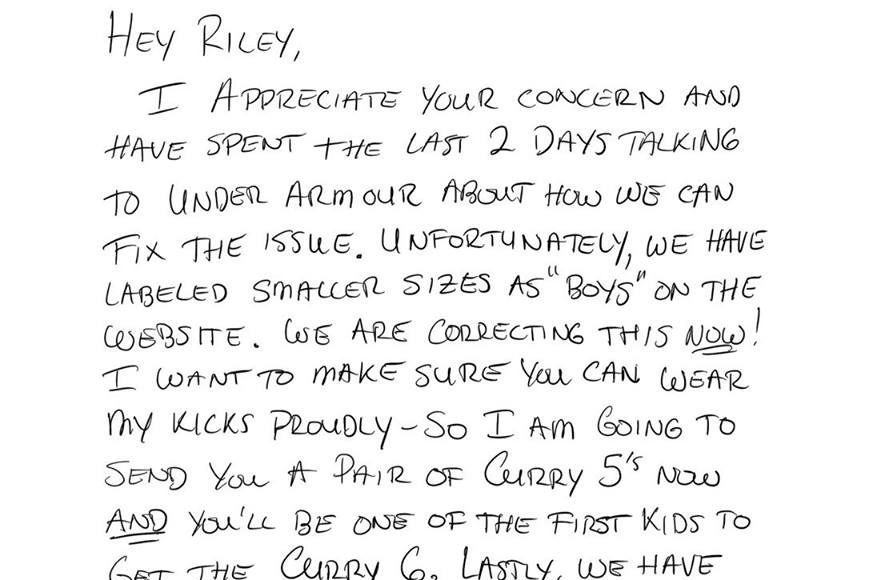 HEY RILEY,
I APPRECIATE YOUR CONCERN AND
HAVE SPENT THE LAST 2 DAYS TALKING
TO UNDER ARMOUR ABOUT HOW WE CAN
FIX THE ISSUE. UNFORTUNATELY, WE HAVE
LABELED SMALLER SIZES AS "BOYS" ON THE
WEBSITE. WE ARE CORRECTING THIS NOW!
I WANT TO MAKE SURE YOU CAN WEAR
MY KICKS PROUDLY - SO I AM GOING TO
SEND YOU A PAIR OF CURRY 5's NOW
AND YOU'LL BE ONE OF THE FIRST KIDS TO
GET THE CURRY 6. LASTLY, WE HAVE